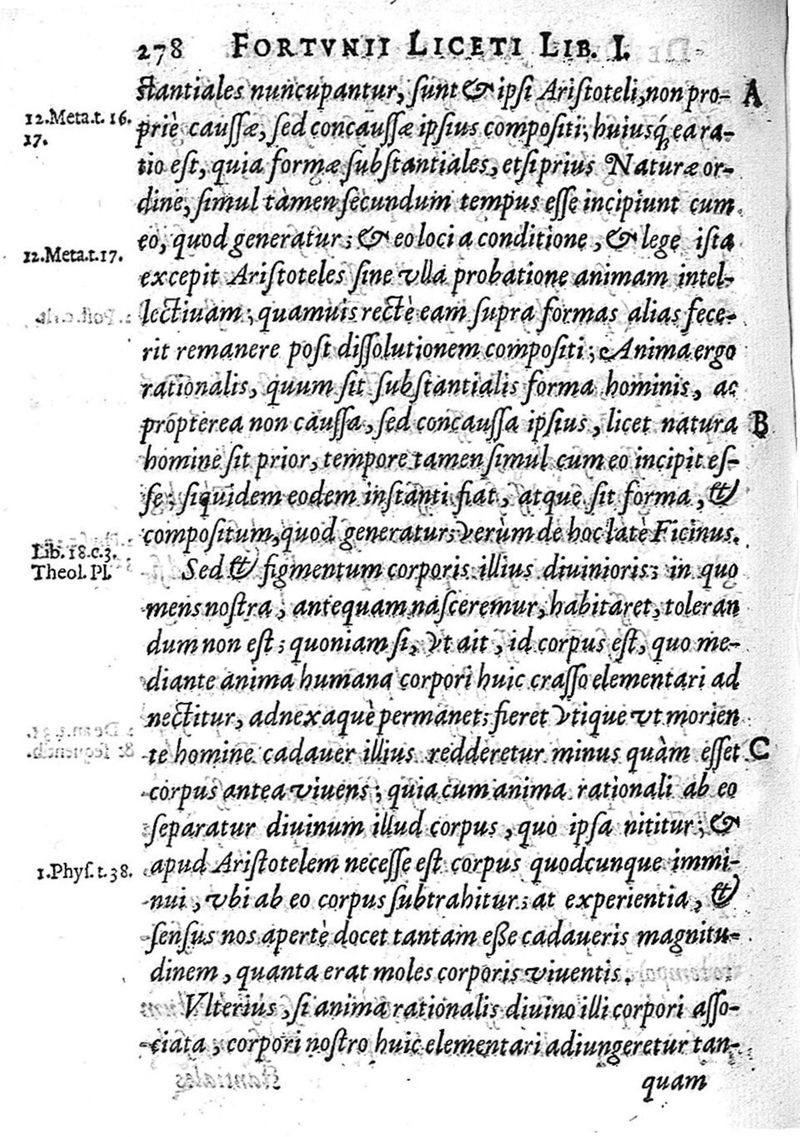 278 FORTVNII LICETI LIB. I.
ſtantiales nuncupantur, ſunt & ipſi Ariſtoteli, non pro- A
12.Meta.t.16. priè cauſſæ, ſed concauſſæ ipſius compoſiti; huiusq́; ea ra-
17.
tio eſt, quia formæ ſubſtantiales, etſi prius Naturæ or-
dine, ſimul tamen ſecundum tempus eſſe incipiunt cum
12.Meta.t.17. eo, quod generatur; & eo loci a conditione, & lege iſta
excepit Ariſtoteles ſine vlla probatione animam intel-
lectiuam; quamuis rectè eam ſupra formas alias fece-
rit remanere poſt diſſolutionem compoſiti; Anima ergo
rationalis, quum ſit ſubſtantialis forma hominis, ac
propterea non cauſſa, ſed concauſſa ipſius, licet natura B
homine ſit prior, tempore tamen ſimul cum eo incipit eſ-
ſe; ſiquidem eodem inſtanti fiat, atque ſit forma, &
compoſitum, quod generatur; verùm de hoc latè Ficinus.
Lib. 18.c.3.
Theol. Pl. Sed & figmentum corporis illius diuinioris; in quo
mens noſtra, antequam naſceremur, habitaret, toleran
dum non eſt; quoniam ſi, vt ait, id corpus eſt, quo me-
diante anima humana corpori huic craſſo elementari ad
nectitur, adnexaquè permanet; fieret vtique vt morien
te homine cadauer illius redderetur minus quàm eſſet C
corpus antea viuens; quia cum anima rationali ab eo
ſeparatur diuinum illud corpus, quo ipſa nititur; &
1.Phyſ.t.38. apud Ariſtotelem neceſſe eſt corpus quodcunque immi-
nui, vbi ab eo corpus ſubtrahitur; at experientia, &
ſenſus nos apertè docet tantam eße cadaueris magnitu-
dinem, quanta erat moles corporis viuentis.
Vlterius, ſi anima rationalis diuino illi corpori aſſo-
ciata, corpori noſtro huic elementari adiungeretur tan-
quam